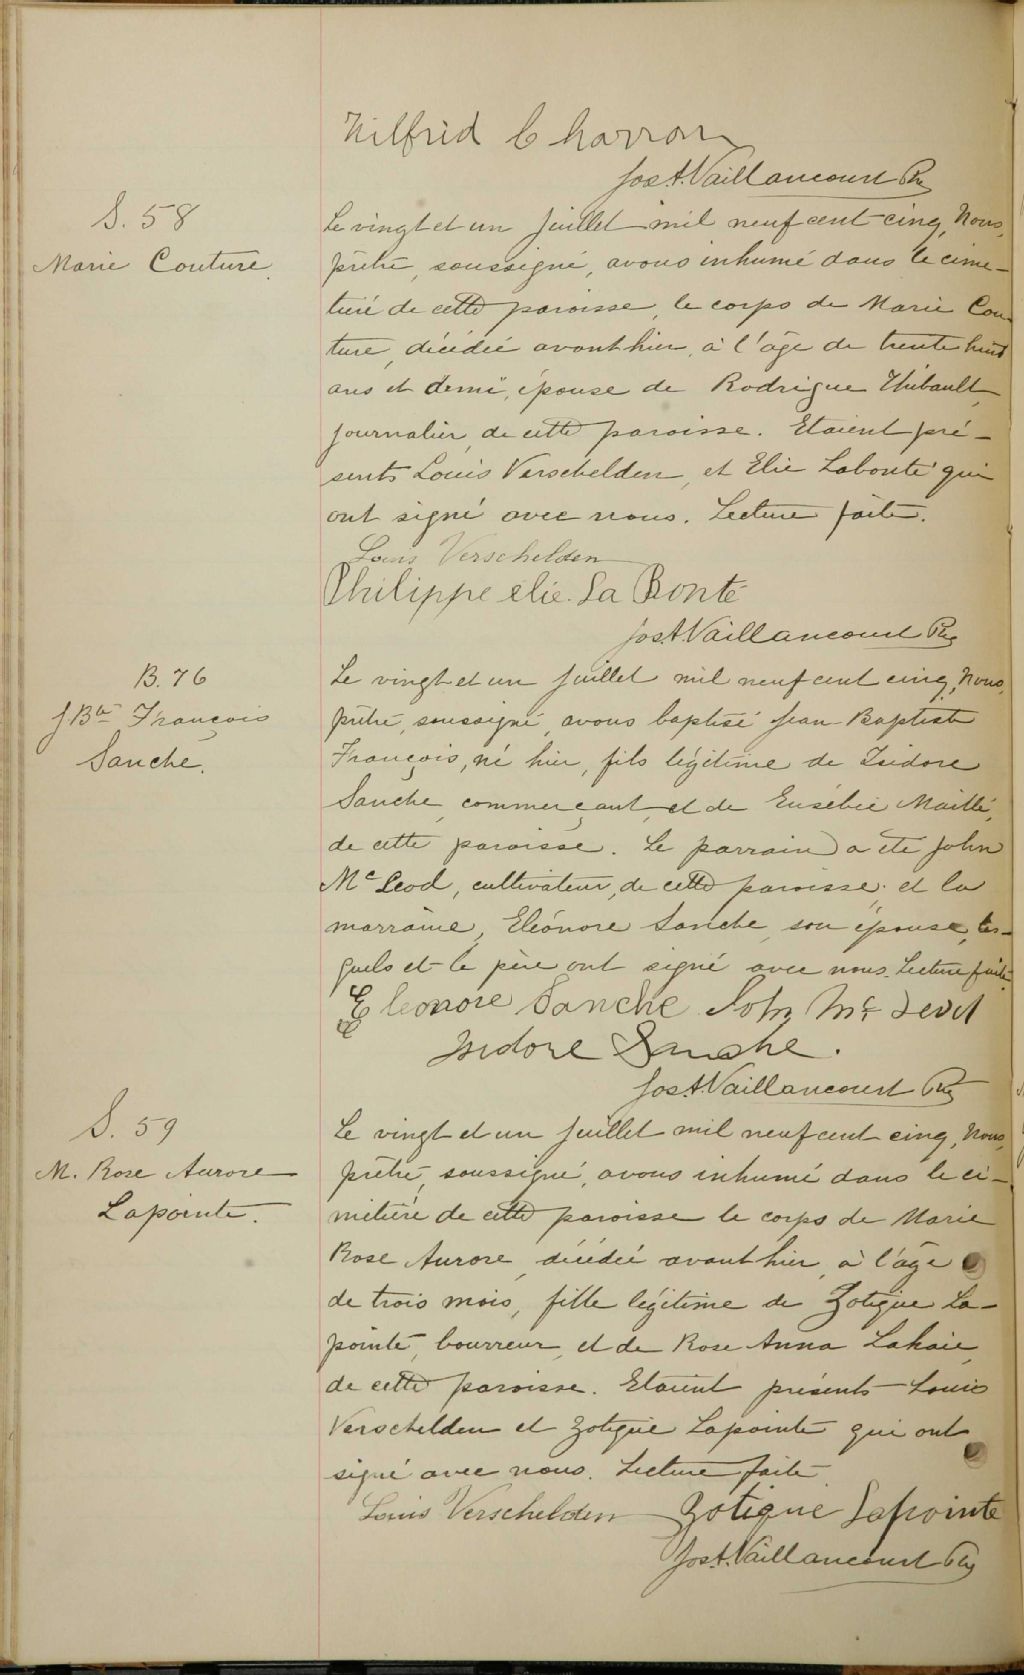 Wilfrid Charron
Jos. A. Vaillancourt Ptr
S. 58
Marie Couture.
Le vingt et un Juillet mil neuf cent cinq, Nous,
prêtre, soussigné, avons inhumé dans le cime-
tière de cette paroisse, le corps de Marie Cou-
ture, décédée avant hier, à l'âge de trente huit
ans et demi, épouse de Rodrigue Thibault,
journalier, de cette paroisse. Etaient pré-
sents Louis Verschelden, et Elie Labonté qui
ont signé avec nous. Lecture faite.
Louis Verschelden
Philippe elie. La Bonté
Jos. A. Vaillancourt Ptr
B. 76
J. Bte François
Sanche.
Le vingt et un Juillet mil neuf cent cinq, Nous,
prêtre, soussigné, avons baptisé Jean-Baptiste
François, né hier, fils légitime de Isidore
Sanche, commerçant, et de Eusébie Maillé,
de cette paroisse. Le parrain a été John
Mc Leod, cultivateur, de cette paroisse, et la
marraine, Eléonore Sanche, son épouse, les-
quels et le père ont signé avec nous. Lecture faite.
Eleonore Sanche John Mc Leod
Isidore Sanche.
Jos. A. Vaillancourt Ptr
S. 59
M. Rose Aurore
Lapointe.
Le vingt et un Juillet mil neuf cent cinq, Nous,
prêtre, soussigné, avons inhumé dans le ci-
metière de cette paroisse le corps de Marie
Rose Aurore, décédée avant hier, à l'âge
de trois mois, fille légitime de Zotique La-
pointe, bourreur, et de Rose Anna Lahaie,
de cette paroisse. Etaient présents Louis
Verschelden et Zotique Lapointe qui ont
signé avec nous. Lecture faite
Louis Verschelden Zotique Lapointe
Jos. A. Vaillancourt Ptr